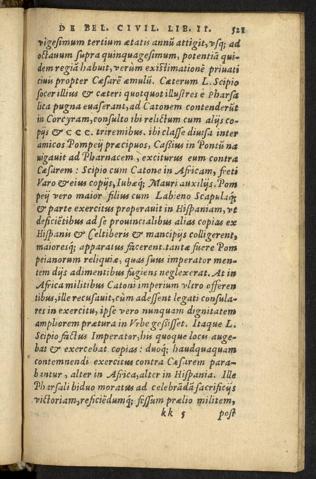 DE BEL. CIVIL. LIB. II. 521
vigesimum tertium ætatis annũ attigit, vsq; ad
octauum supra quinquagesimum, potentiã qui-
dem regiã habuit, verùm existimatione priuati
ciuis propter Cæsarẽ æmulũ. Cæterum L. Scipio
socer illius & cæteri quotquot illustres è Pharsa
lica pugna euaserant, ad Catonem contenderũt
in Corcyram, consulto ibi relictum cum alijs co-
pijs & C C C. triremibus. ibi classe diuisa inter
amicos Pompeij præcipuos, Cassius in Pontũ na
uigauit ad Pharnacem, exciturus eum contra
Cæsarem: Scipio cum Catone in Africam, freti
Varo & eius copijs, Iubæq; Mauri auxilijs. Pom
peij vero maior filius cum Labieno Scapulaq;
& parte exercitus properauit in Hispaniam, vt
deficiẽtibus ad se prouincialibus alias copias ex
Hispanis & Celtiberis & mancipijs colligerent,
maioresq; apparatus facerent. tantæ fuere Pom
peianorum reliquiæ, quas suus imperator men-
tem dijs adimentibus fugiens neglexerat. At in
Africa militibus Catoni imperium vltro offeren
tibus, ille recusauit, cùm adessent legati consula-
res in exercitu, ipse vero nunquam dignitatem
ampliorem prætura in Vrbe gessisset. Itaque L.
Scipio factus Imperator, his quoque locis auge-
bat & exercebat copias: duoq; haudquaquam
contemnendi exercitus contra Cæsarem para-
bantur, alter in Africa, alter in Hispania. Ille
Pharsali biduo moratus ad celebrãdã sacrificijs
victoriam, reficiẽdumq; fessum prælio militem,
kk 5 post